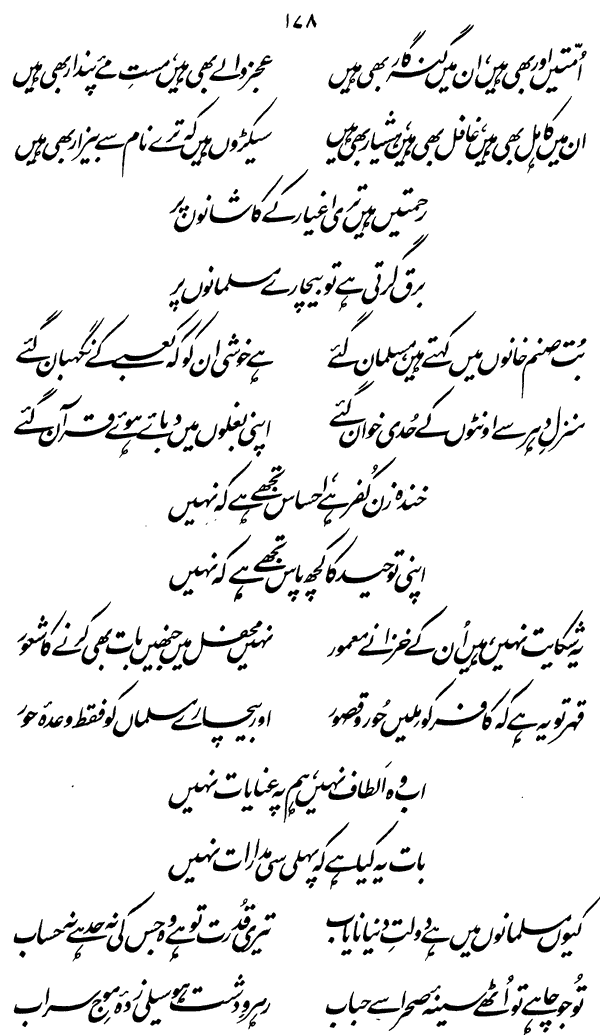 ۱۷۸
اُمّتیں اور بھی ہیں، ان میں گنہ گار بھی ہیں عجز والے بھی ہیں، مستِ مۓ پندار بھی ہیں
ان میں کاہل بھی ہیں، غافل بھی ہیں، ہشیار بھی ہیں سیکڑوں ہیں کہ ترے نام سے بیزار بھی ہیں
رحمتیں ہیں تری اغیار کے کاشانوں پر
برق گرتی ہے تو بیچارے مسلمانوں پر
بُت صنم خانوں میں کہتے ہیں، مسلمان گئے ہے خوشی ان کو کہ کعبے کے نگہبان گئے
منزلِ دہر سے اونٹوں کے حُدی خوان گئے اپنی بغلوں میں دبائے ہوئے قرآن گئے
خندہ زن کُفر ہے، احساس تجھے ہے کہ نہیں
اپنی توحید کا کچھ پاس تجھے ہے کہ نہیں
یہ شکایت نہیں، ہیں اُن کے خزانے معمور نہیں محفل میں جنھیں بات بھی کرنے کا شعور
قہر تو یہ ہے کہ کافر کو ملیں حُور و قصور اور بیچارے مسلماں کو فقط وعدۂ حور
اب وہ اَلطاف نہیں، ہم پہ عنایات نہیں
بات یہ کیا ہے کہ پہلی سی مدارات نہیں
کیوں مسلمانوں میں ہے دولتِ دنیا نایاب تیری قُدرت تو ہے وہ جس کی نہ حد ہے نہ حساب
تُو جو چاہے تو اُٹھے سینۂ صحرا سے حباب رہروِ دشت ہو سیلی زدۂ موجِ سراب